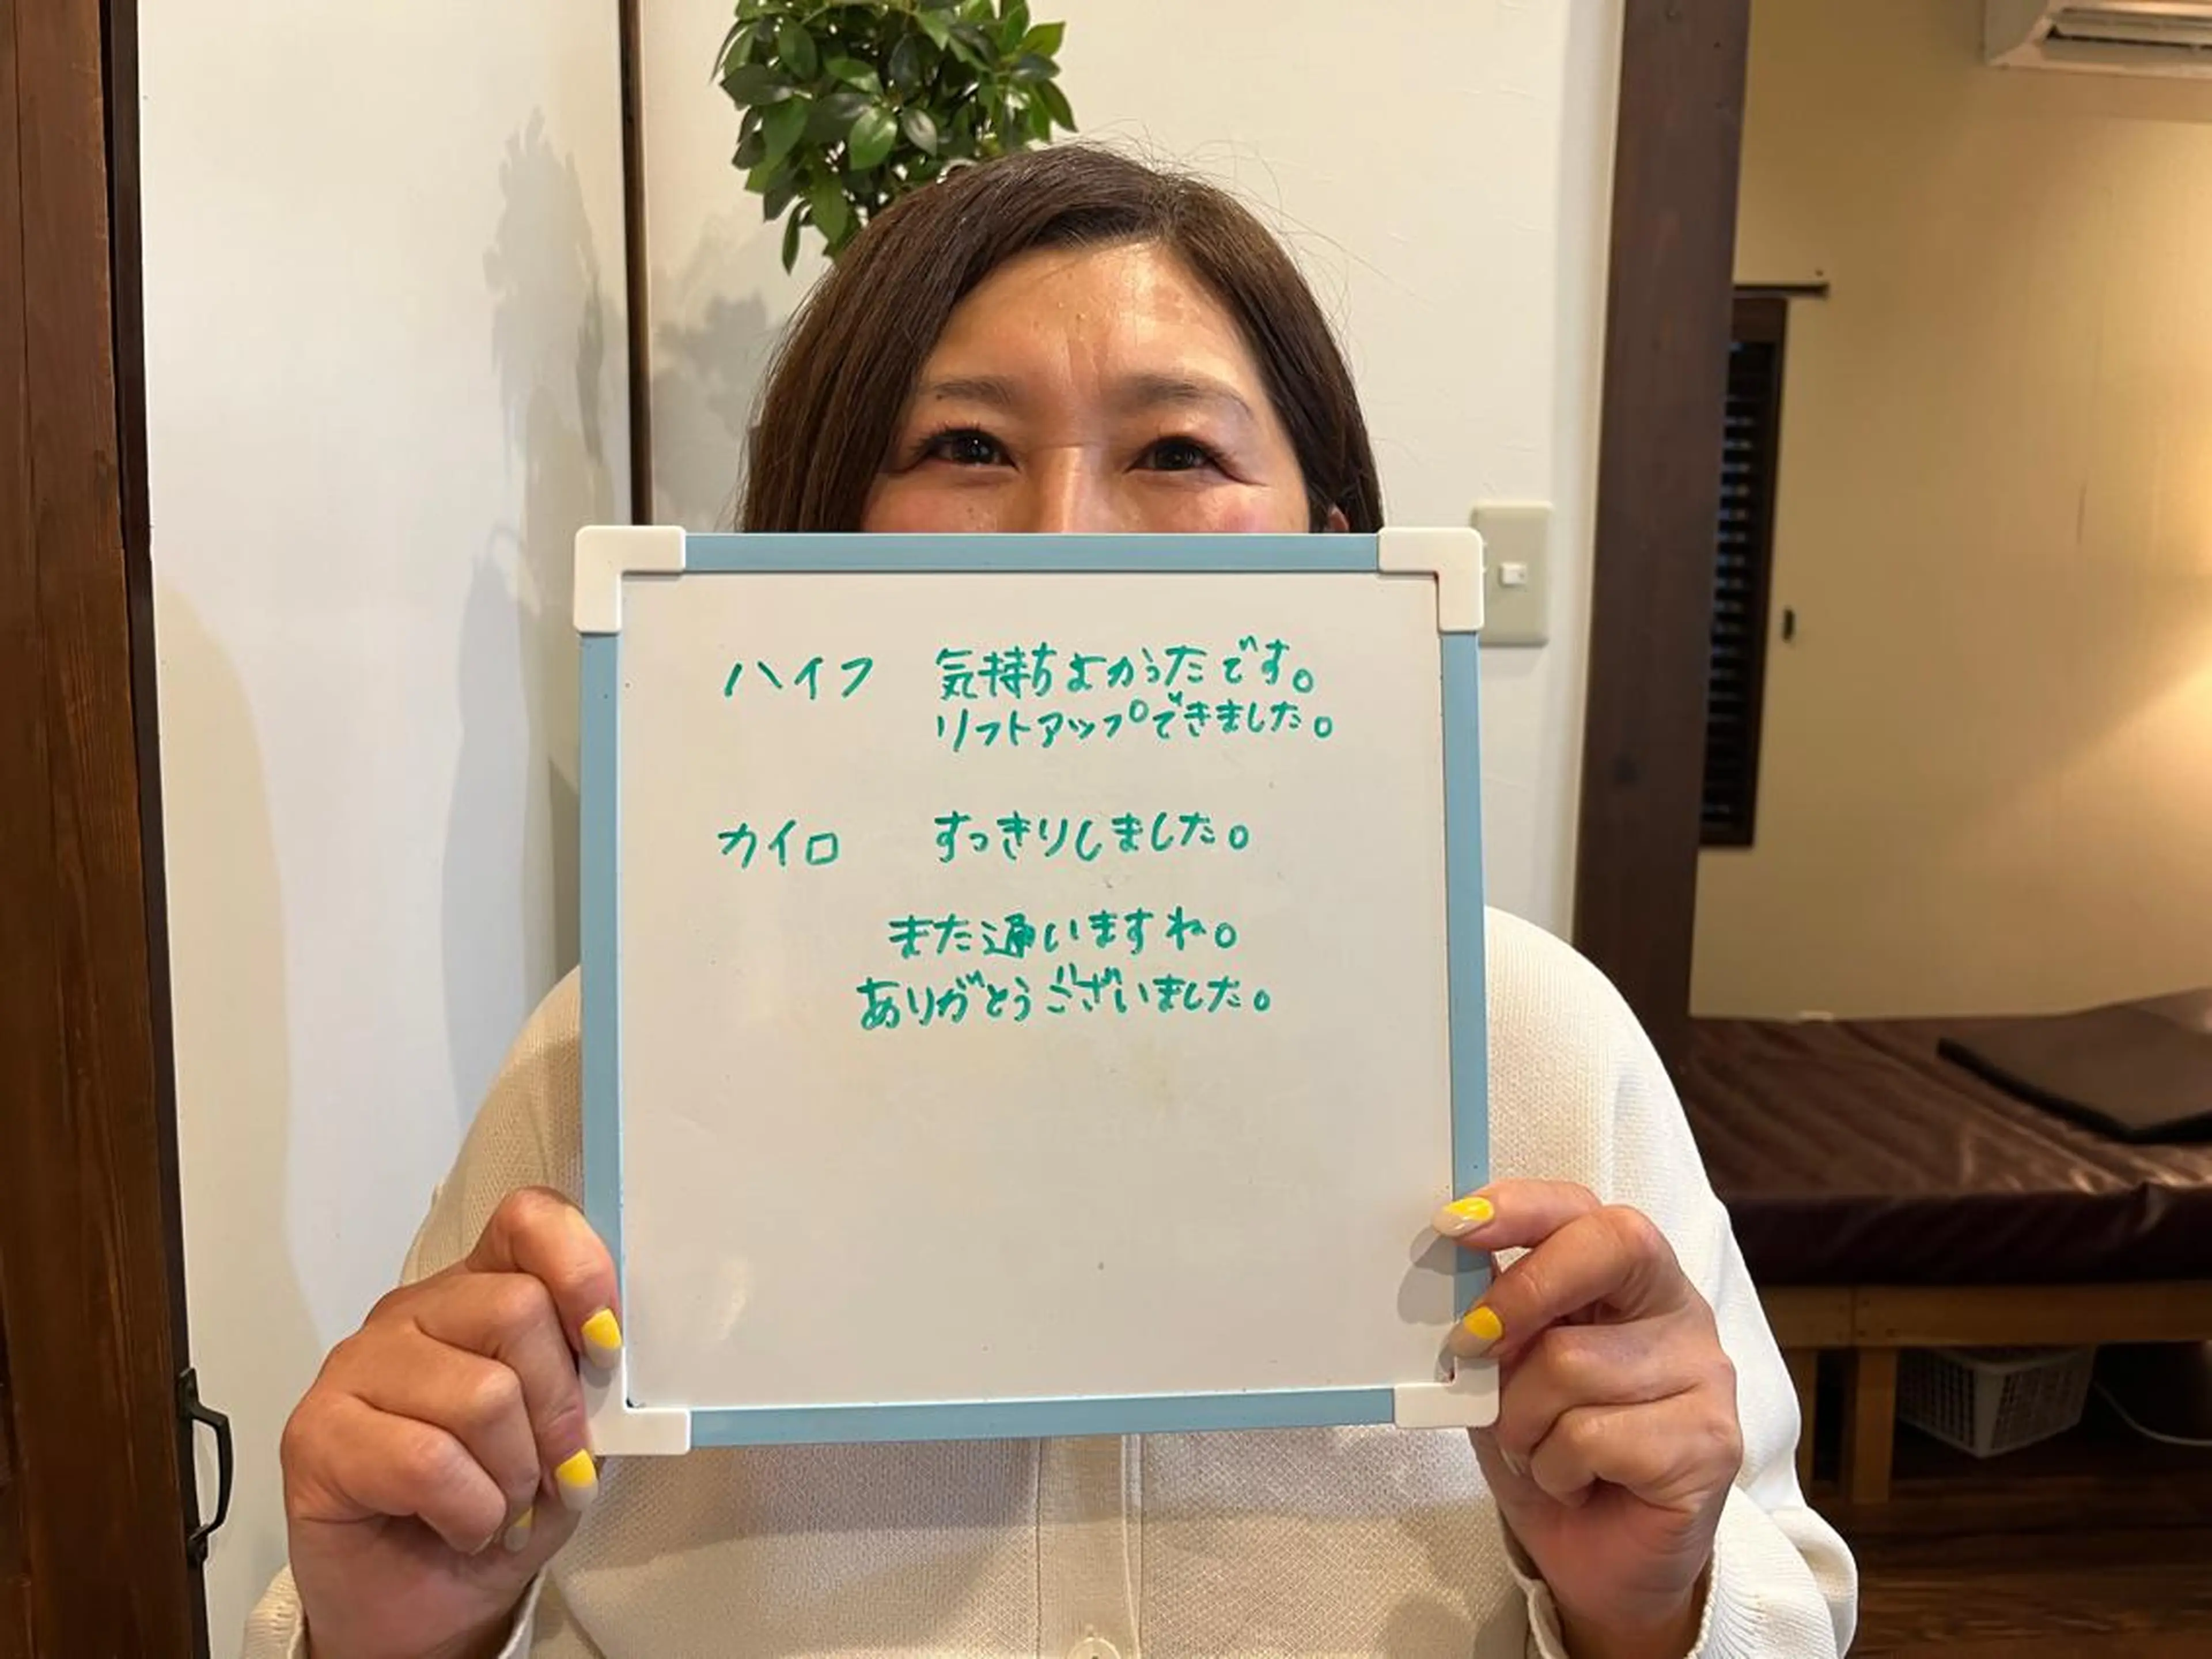 ハイフ 気持ちよかったです。
リフトアップできました。
カイロ すっきりしました。
また通いますね。
ありがとうございました。